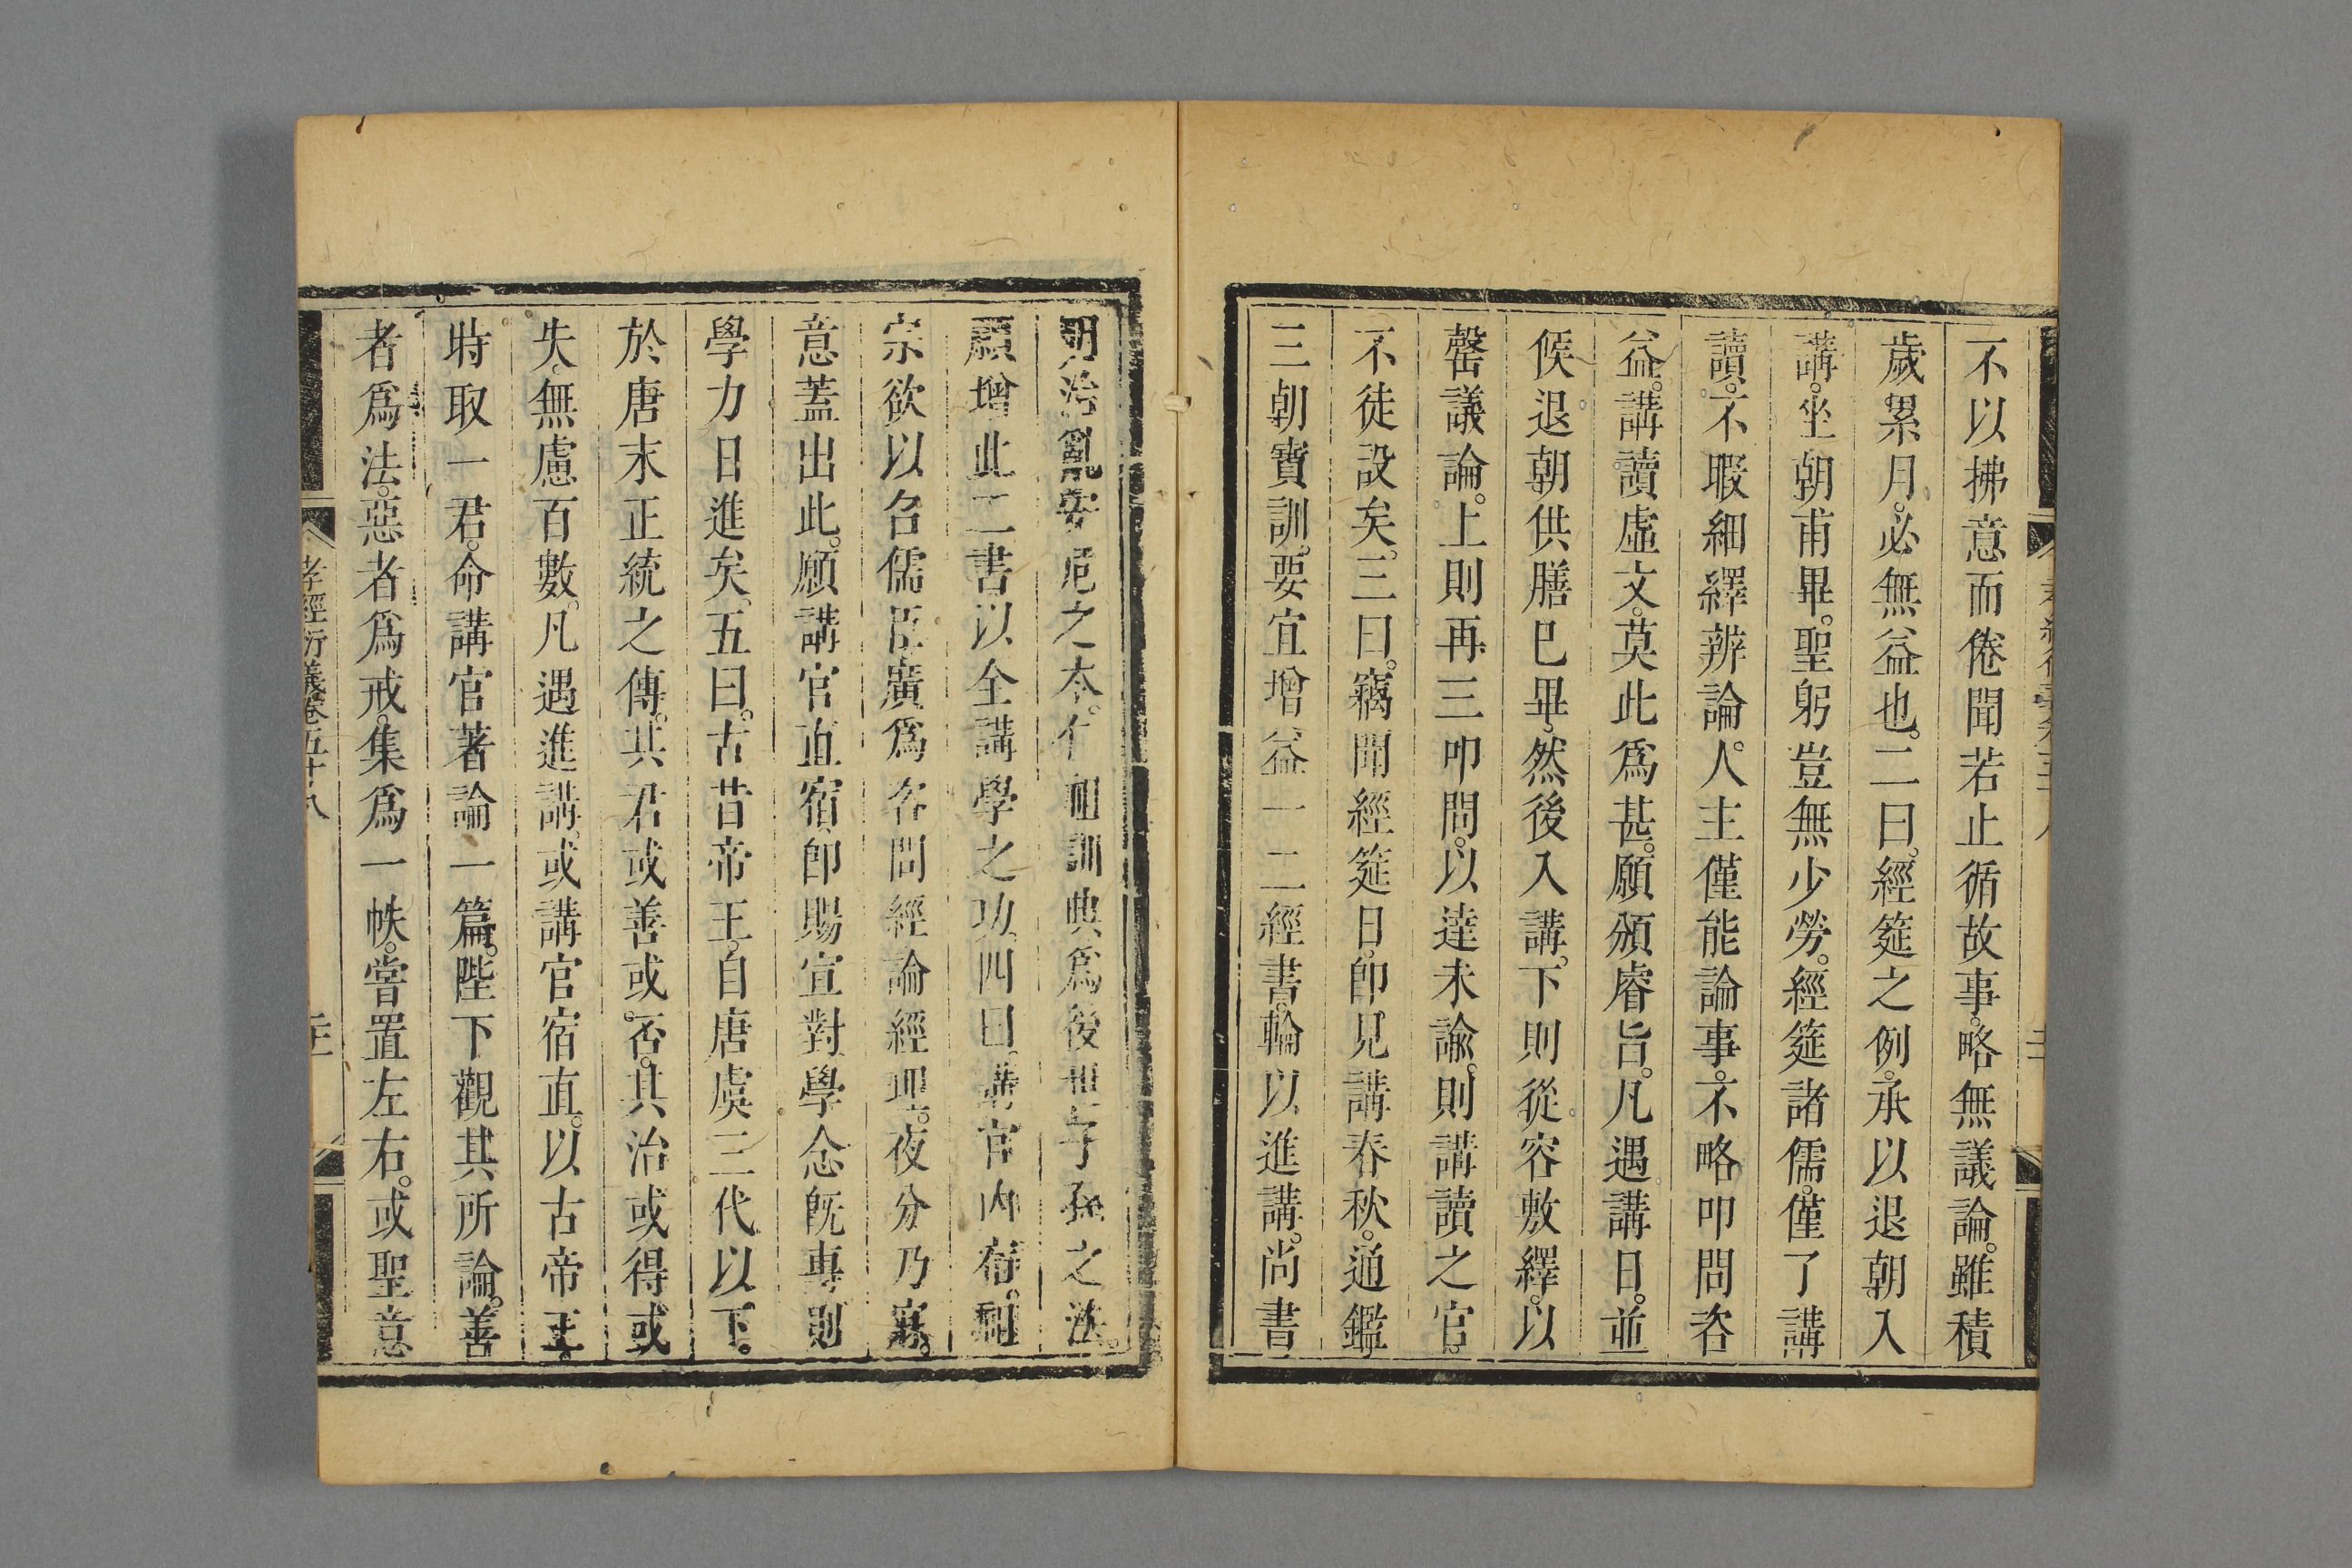 不以拂意而倦聞若止循故事。略無議論。雖積
歲累月。必無益也。二曰。經筵之例。承以退朝入
講。坐朝甫畢。聖躬豈無少勞。經筵諸儒。僅了講
讀。不暇細繹辨論。人主僅能論事。不略叩問咨
益。講讀虛文。莫此爲甚。願頒睿旨。凡遇講日。並
候退朝供膳已畢。然後入講。下則從容敷繹。以
罄議論。上則再三叩問。以達未諭。則講讀之官。
不徒設矣。三曰。竊聞經筵日。卽見講春秋。通鑑
三朝寶訓。要宜增益一二經書。輪以進講。尚書
明治亂安危之本。仁祖訓典爲後世子孫之法。
願增此二書以全講學之功。四曰。講官內宿。祖
宗欲以名儒臣廣爲咨問經論經理。夜分乃寐。
意蓋出此。願講官直宿。卽賜宣對學念旣專。則
學力日進矣。五曰。古昔帝王。自唐虞三代以下。
於唐末正統之傳。其君或善或。否。其治或得或
失。無慮百數。凡遇進講。或講官宿直。以古帝王。
時取一君。命講官著論一篇。陛下觀其所論。善
者爲法。惡者爲戒。集爲一帙。嘗置左右。或聖意
孝經衍義卷五十八